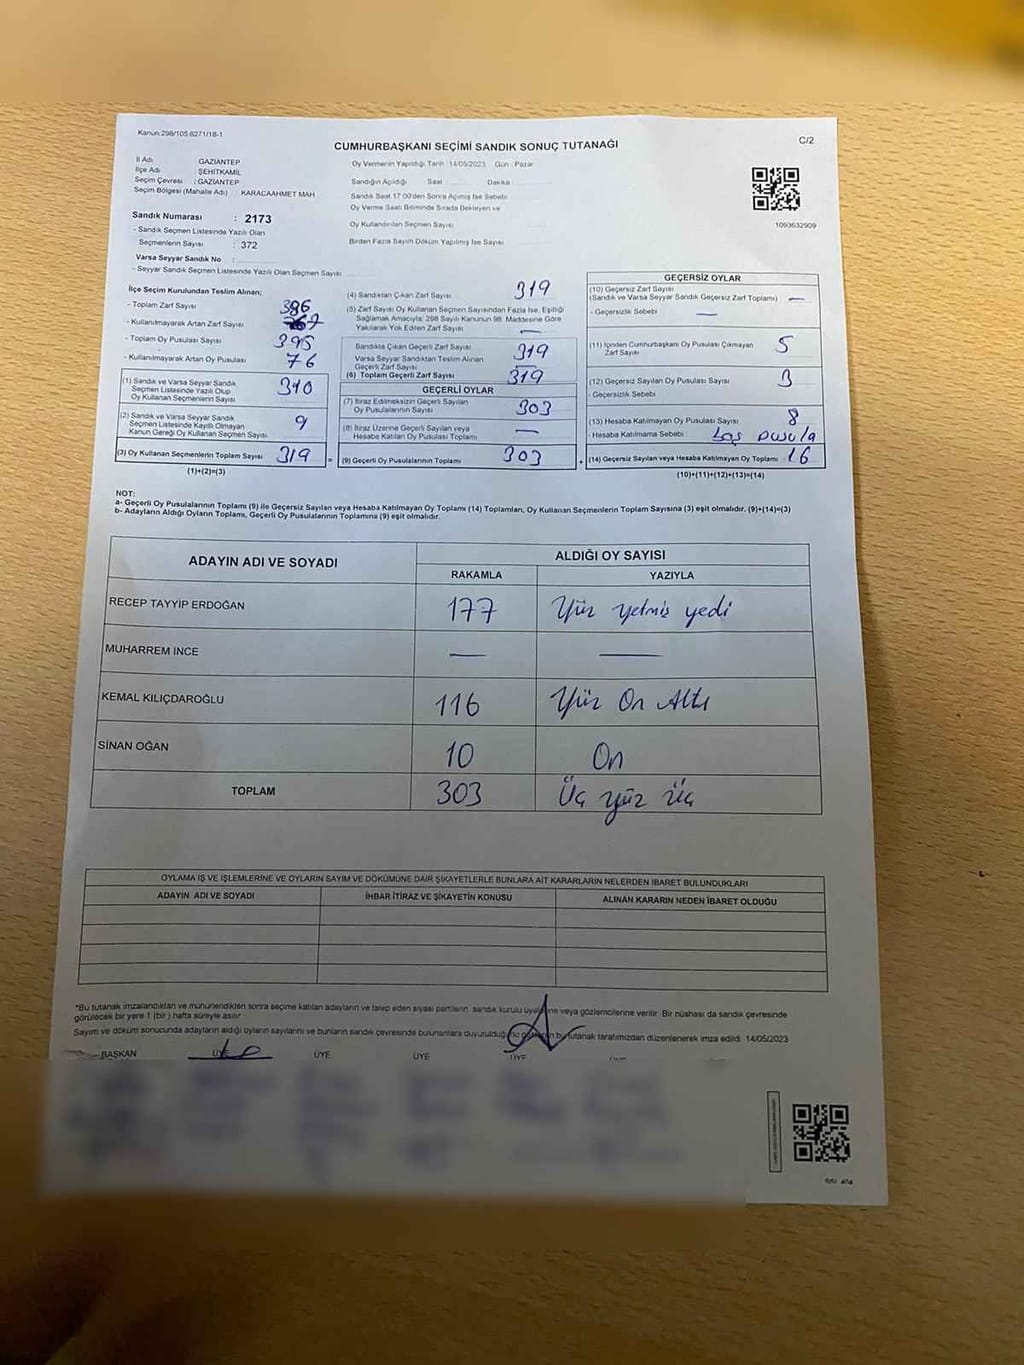 Kanun:298/105.6271/18-1
C/2
CUMHURBAŞKANI SEÇİMİ SANDIK SONUÇ TUTANAĞI
İl Adı : GAZİANTEP
İlçe Adı : ŞEHİTKAMİL
Seçim Çevresi : GAZİANTEP
Seçim Bölgesi (Mahalle Adı) : KARACAAHMET MAH
Sandık Numarası : 2173
- Sandık Seçmen Listesinde Yazılı Olan
Seçmenlerin Sayısı : 372
Varsa Seyyar Sandık No :
- Seyyar Sandık Seçmen Listesinde Yazılı Olan Seçmen Sayısı
Oy Vermenin Yapıldığı Tarih : 14/05/2023 Gün : Pazar
Sandığın Açıldığı Saat Dakika
Sandık Saat 17:00'den Sonra Açılmış İse Sebebi
Oy Verme Saati Bitiminde Sırada Bekleyen ve
Oy Kullandırılan Seçmen Sayısı
Birden Fazla Sayım Döküm Yapılmış İse Sayısı
1093632909
İlçe Seçim Kurulundan Teslim Alınan;
- Toplam Zarf Sayısı 386
- Kullanılmayarak Artan Zarf Sayısı 67
- Toplam Oy Pusulası Sayısı 395
- Kullanılmayarak Artan Oy Pusulası 76
(1) Sandık ve Varsa Seyyar Sandık
Seçmen Listesinde Yazılı Olup
Oy Kullanan Seçmenlerin Sayısı 310
(2) Sandık ve Varsa Seyyar Sandık
Seçmen Listesinde Kayıtlı Olmayan
Kanun Gereği Oy Kullanan Seçmen Sayısı 9
(3) Oy Kullanan Seçmenlerin Toplam Sayısı 319
(1)+(2)=(3)
(4) Sandıktan Çıkan Zarf Sayısı 319
(5) Zarf Sayısı Oy Kullanan Seçmen Sayısından Fazla İse, Eşitliği
Sağlamak Amacıyla; 298 Sayılı Kanunun 98. Maddesine Göre
Yakılarak Yok Edilen Zarf Sayısı —
Sandıkta Çıkan Geçerli Zarf Sayısı 319
Varsa Seyyar Sandıktan Teslim Alınan
Geçerli Zarf Sayısı —
(6) Toplam Geçerli Zarf Sayısı 319
GEÇERLİ OYLAR
(7) İtiraz Edilmeksizin Geçerli Sayılan
Oy Pusulalarının Sayısı 303
(8) İtiraz Üzerine Geçerli Sayılan veya
Hesaba Katılan Oy Pusulası Toplamı —
= (9) Geçerli Oy Pusulalarının Toplamı 303
GEÇERSİZ OYLAR
(10) Geçersiz Zarf Sayısı
(Sandık ve Varsa Seyyar Sandık Geçersiz Zarf Toplamı) —
- Geçersizlik Sebebi —
(11) İçinden Cumhurbaşkanı Oy Pusulası Çıkmayan
Zarf Sayısı 5
(12) Geçersiz Sayılan Oy Pusulası Sayısı 3
- Geçersizlik Sebebi
(13) Hesaba Katılmayan Oy Pusulası Sayısı 8
- Hesaba Katılmama Sebebi boş pusula
+ (14) Geçersiz Sayılan veya Hesaba Katılmayan Oy Toplamı 16
(10)+(11)+(12)+(13)=(14)
NOT:
a- Geçerli Oy Pusulalarının Toplamı (9) ile Geçersiz Sayılan veya Hesaba Katılmayan Oy Toplamı (14) Toplamları, Oy Kullanan Seçmenlerin Toplam Sayısına (3) eşit olmalıdır. (9)+(14)=(3)
b- Adayların Aldığı Oyların Toplamı, Geçerli Oy Pusulalarının Toplamına (9) eşit olmalıdır.
ADAYIN ADI VE SOYADI
ALDIĞI OY SAYISI
RAKAMLA YAZIYLA
RECEP TAYYİP ERDOĞAN 177 Yüz yetmiş yedi
MUHARREM İNCE — —
KEMAL KILIÇDAROĞLU 116 Yüz On Altı
SİNAN OĞAN 10 On
TOPLAM 303 Üç yüz üç
OYLAMA İŞ VE İŞLEMLERİNE VE OYLARIN SAYIM VE DÖKÜMÜNE DAİR ŞİKAYETLERLE BUNLARA AİT KARARLARIN NELERDEN İBARET BULUNDUKLARI
ADAYIN ADI VE SOYADI İHBAR İTİRAZ VE ŞİKAYETİN KONUSU ALINAN KARARIN NEDEN İBARET OLDUĞU
*Bu tutanak imzalandıktan ve mühürlendikten sonra seçime katılan adayların ve talep eden siyasi partilerin sandık kurulu üyelerine veya gözlemcilerine verilir. Bir nüshası da sandık çevresinde
görülecek bir yere 1 (bir) hafta süreyle asılır.
Sayım ve döküm sonucunda adayların aldığı oyların sayılarını ve bunların sandık çevresinde bulunanlara duyurulduğunu gösteren bu tutanak tarafımızdan düzenlenerek imza edildi. 14/05/2023
BAŞKAN ÜYE ÜYE ÜYE ÜYE